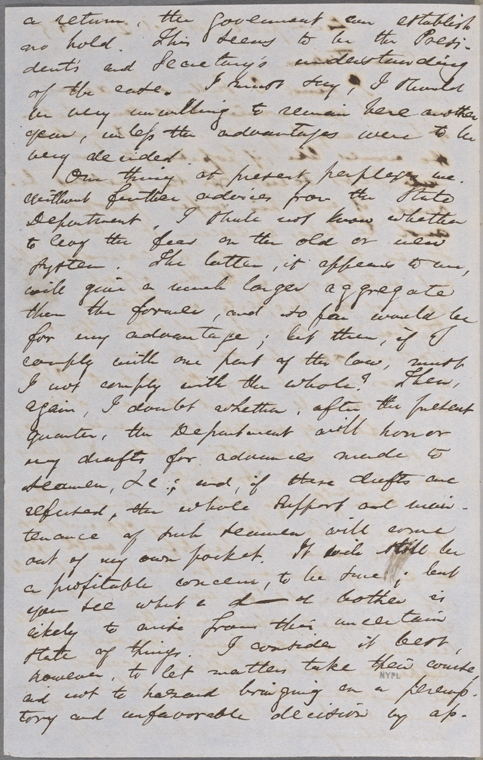 a return, the government can establish
no hold. This seems to be the Presi-
dent's and Secretary's understanding
of the case. I must say, I should
be very unwilling to remain here another
year, unless the advantages were to be
very decided.
One thing at present perplexes me.
Without further advices from the State
Department, I shall not know whether
to levy the fees on the old or new
system. The latter, it appears to me,
will give a much larger aggregate
than the former, and so far would be
for my advantage; but then, if I
comply with one part of the law, must
I not comply with the whole? Then,
again, I doubt whether, after the present
quarter, the Department will honor
my drafts for advances made to
seamen, &c; and, if these drafts are
refused, the whole support and main-
tenance of such seamen will come
out of my own pocket. It will still be
a profitable concern, to be sure; but
you see what a d—d bother is
likely to arise from this uncertain
state of things. I consider it best,
however, to let matters take their course
and not to hazard bringing on a peremp-
tory and unfavorable decision by ap-
NYPL